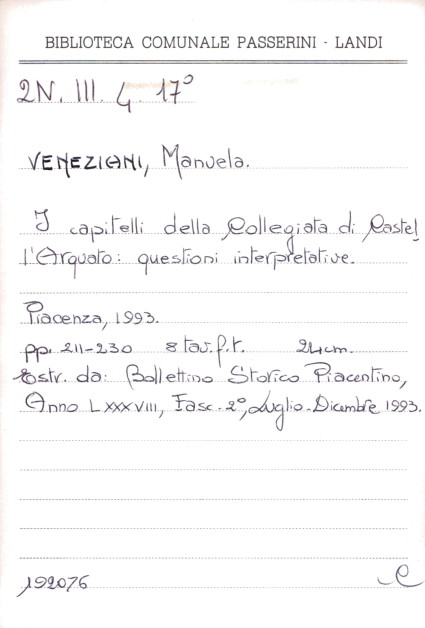 BIBLIOTECA COMUNALE PASSERINI - LANDI
2N. III. 4. 17°
VENEZIANI, Manuela.
I capitelli della Collegiata di Castel
l'Arquato: questioni interpretative.
Piacenza, 1993.
pp. 211-230 8 tav. f.t. 24cm.
Estr. da: Bollettino Storico Piacentino,
Anno LXXXVIII, Fasc. 2°, Luglio-Dicembre 1993.
192076 C